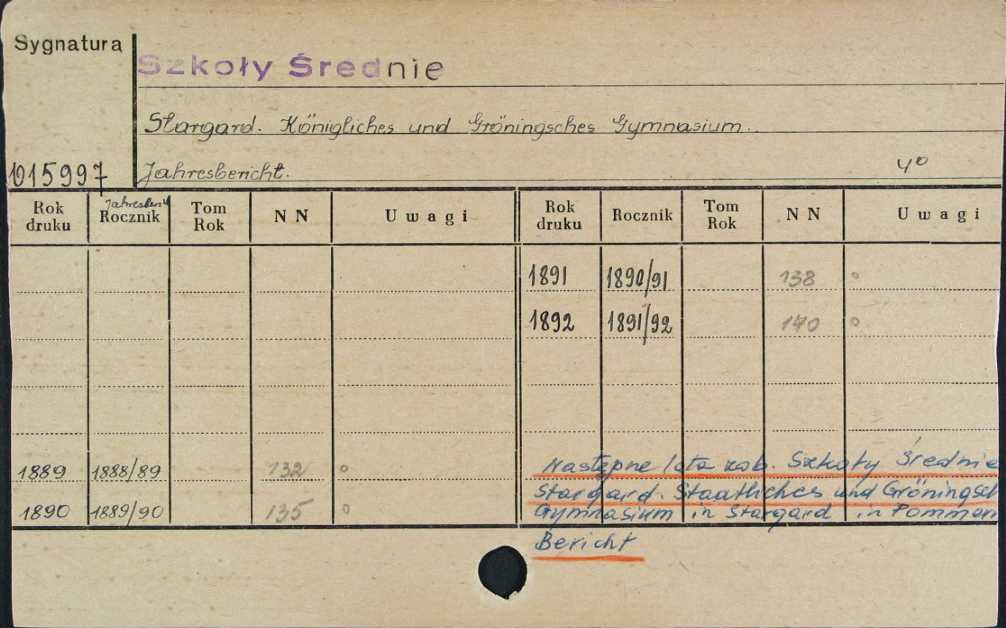 Sygnatura
Szkoły Średnie
Stargard. Königliches und Gröningsches Gymnasium.
015997
Jahresbericht. 4°
Rok druku Jahresber. Rocznik Tom Rok N N Uwagi Rok druku Rocznik Tom Rok N N Uwagi
1891 1890/91 138 °
1892 1891/92 140 °
1889 1888/89 132 ° Następne lata zob. Szkoły Średnie
1890 1889/90 135 ° Stargard. Staatliches und Gröningsch
Gymnasium in Stargard in Pommern
Bericht